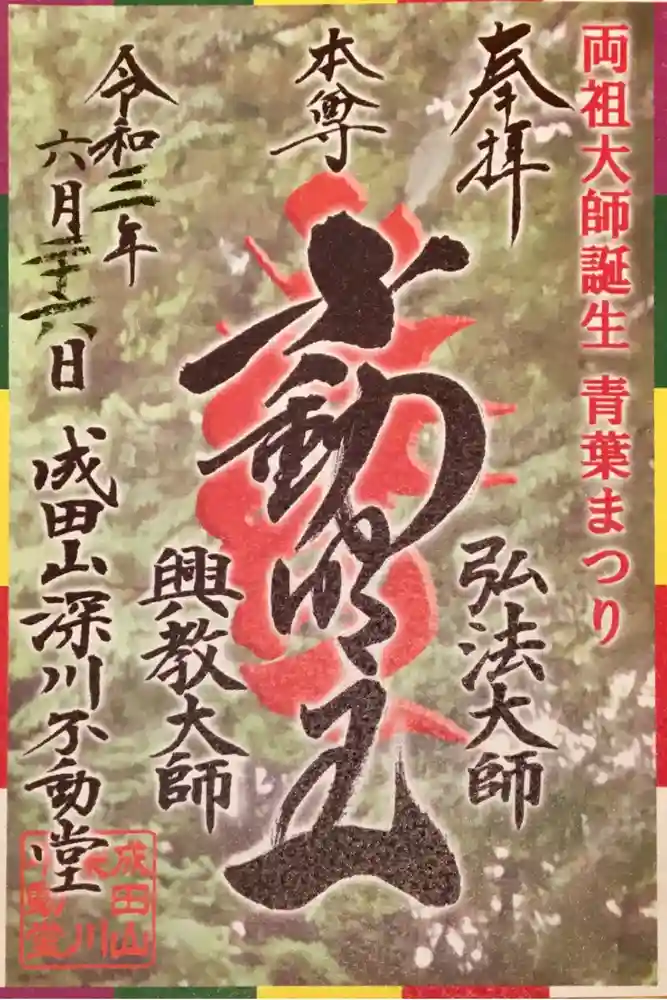 両祖大師誕生 青葉まつり
奉拝
弘法大師
本尊
不動明王
興教大師
令和三年
六月二十六日
成田山深川不動堂
成田山
深川
不動堂